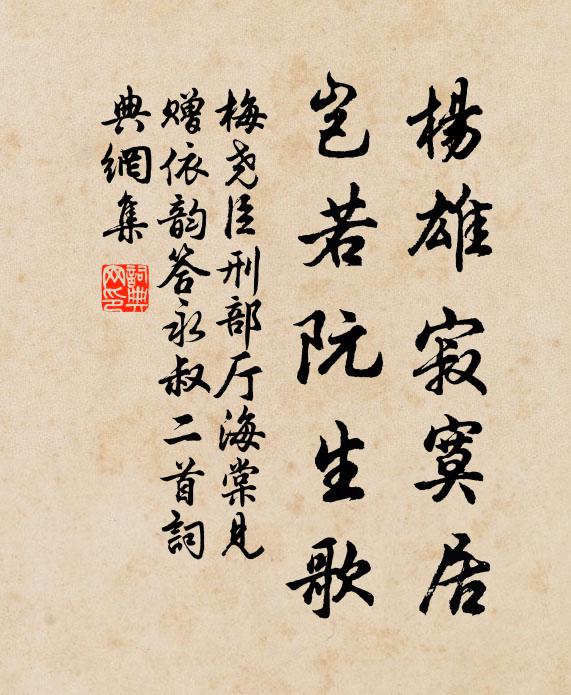 楊雄寂寞居
岂若阮生歌
梅尧臣刑部厅海棠见
赠依韵答永叔二首詞
典網集
詞典
网印